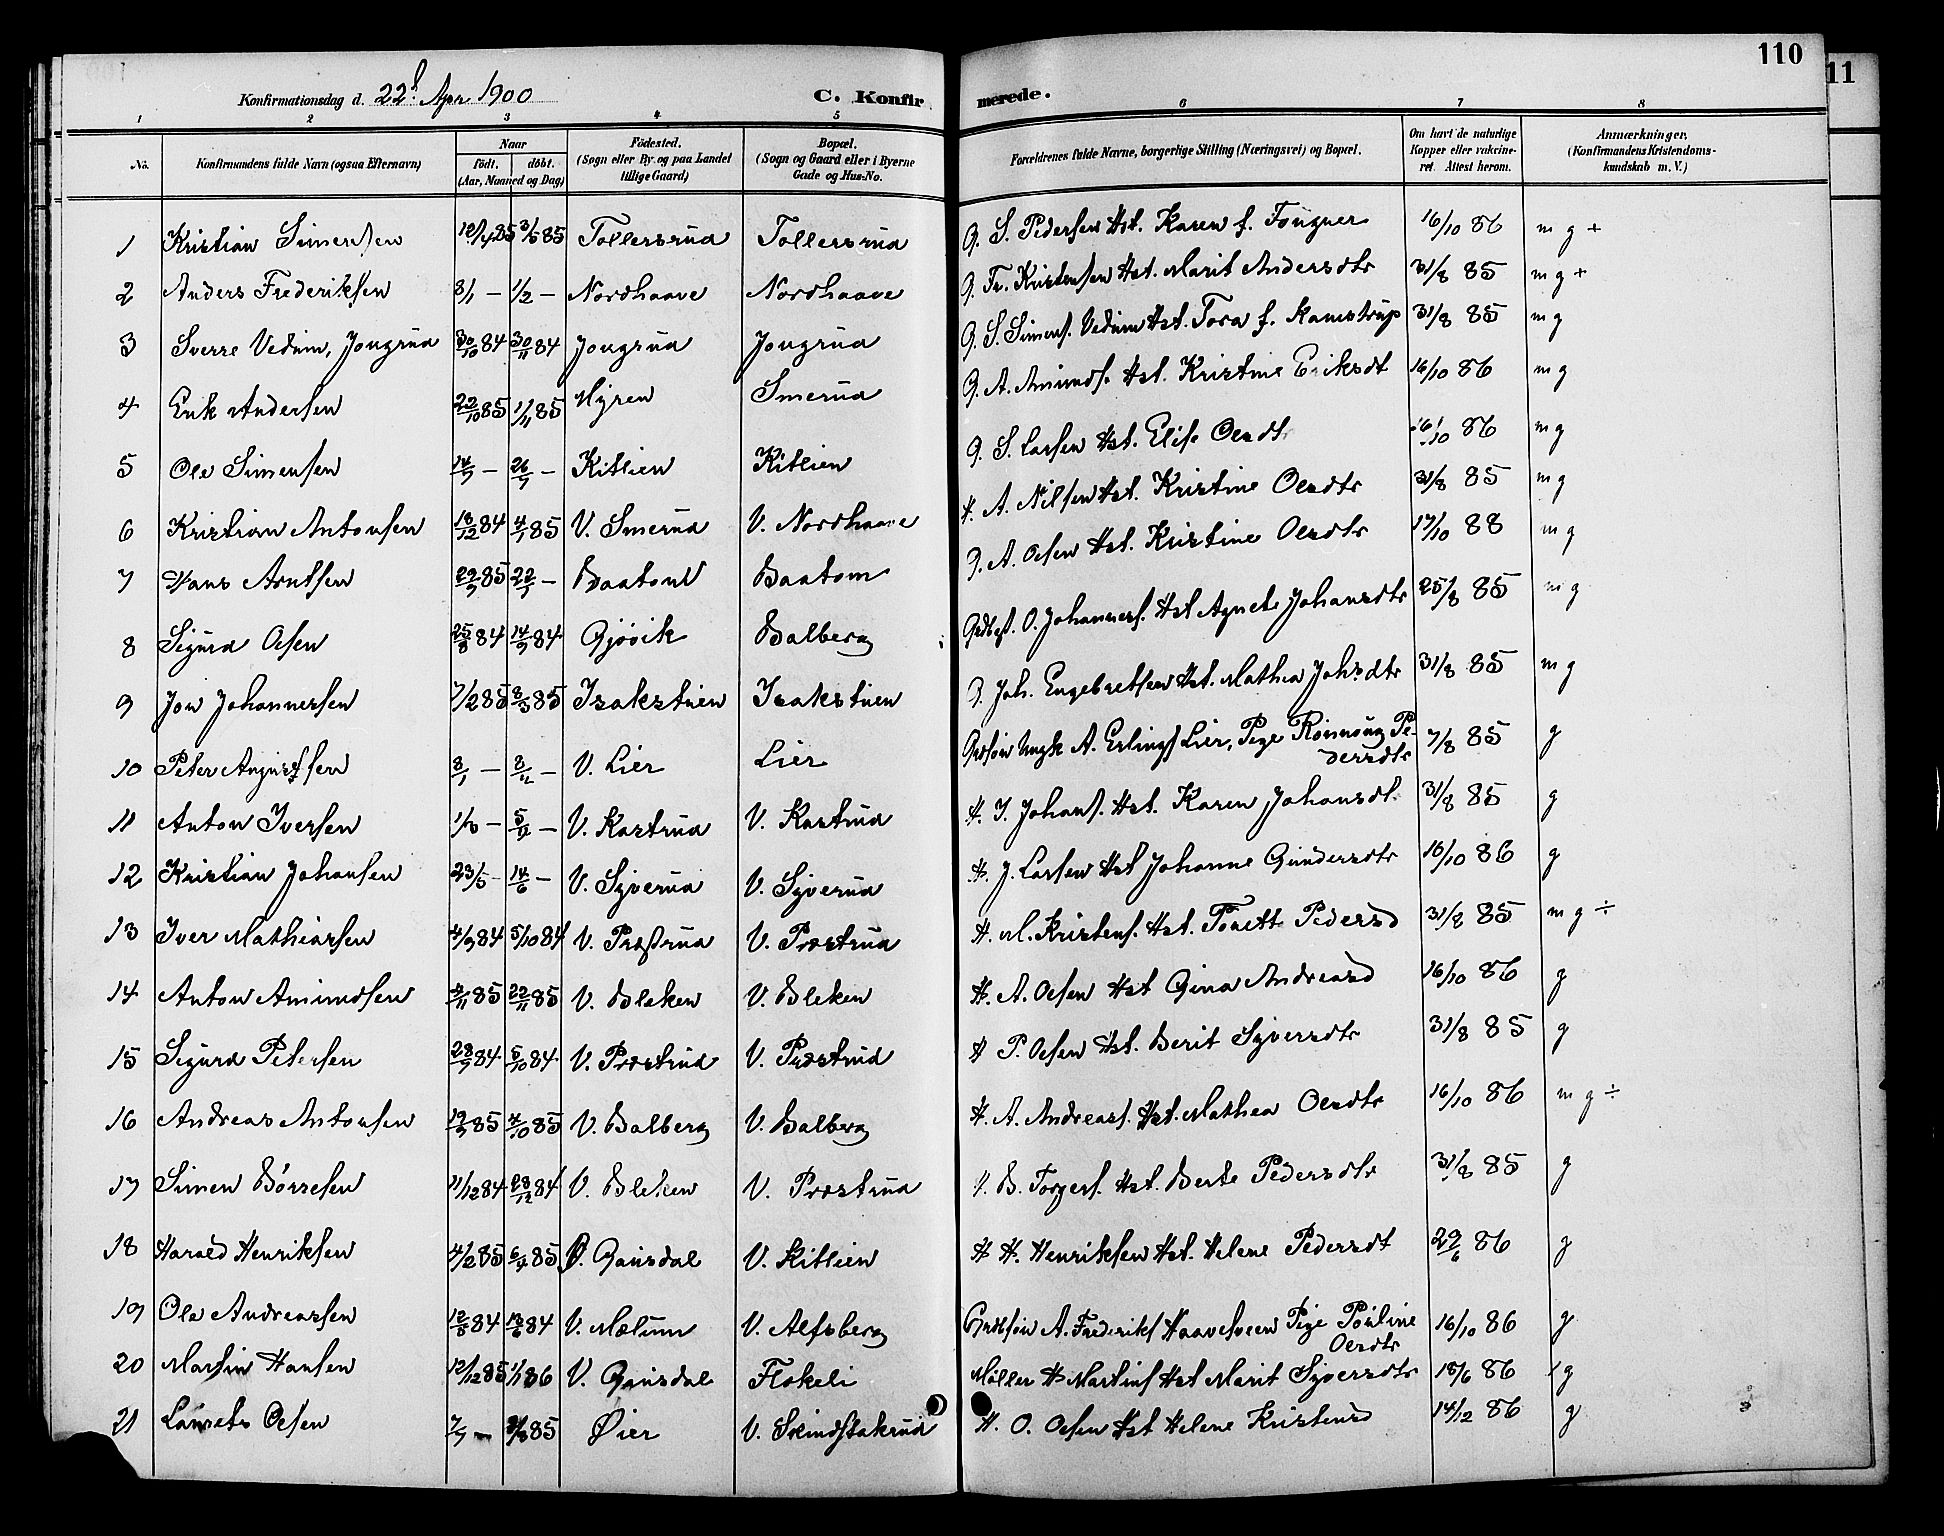 110
11
Konfirmationsdag d. 22d Apr 1900 C. Konfirmerede.
1 2 3 4 5 6 7 8
No. Konfirmandens fulde Navn (ogsaa Efternavn) Naar født. døbt. (Aar, Maaned og Dag) Fødested. (Sogn eller By og paa Landet tillige Gaard) Bopæl. (Sogn og Gaard eller i Byerne Gade og Hus-No. Forældrenes fulde Navne, borgerlige Stilling (Næringsvei) og Bopæl. Om havt de naturlige Kopper eller vakcineret. Attest herom. Anmærkninger, (Konfirmandens Kristendomskundskab m. V.)
1 Kristian Simensen 12/4 85 3/5 85 Tollersrud Tollersrud G. S. Pedersen Hst. Karen f. Fougner 16/10 86 m g +
2 Anders Frederiksen 8/1 — 1/2 — Nordhaave Nordhaave G. Fr. Kristensen Hst. Marit Andersdtr 31/8 85 m g +
3 Sverre Vedum, Jongrud 30/10 84 30/11 84 Jongrud Jongrud G. S. Simens. Vedum Hst. Tora f. Kamstrup 31/8 85 m g
4 Erik Andersen 22/10 85 1/11 85 Myren Smerud G. A. Amunds. Hst. Kristine Eriksdt 16/10 86 m g
5 Ole Simensen 14/7 — 26/7 — Kitlien Kitlien G. S. Larsen Hst. Elise Olesdtr 16/10 86 m g
6 Kristian Antonsen 18/12 84 4/1 85 V. Smerud V. Nordhaave H. A. Nilsen Hst. Kristine Olesdtr 31/8 85 m g
7 Hans Arntsen 29/3 85 22/5 — Baatom Baatom G. A. Olsen Hst. Kristine Olesdtr 17/10 88 m g
8 Sigurd Olsen 25/8 84 14/9 84 Gjøvik Balberg O. Johanness. Hst Agnete Johansdtr 25/8 85 m g
9 Jon Johannessen 7/2 85 8/3 85 Isakstuen Isakstuen G. Joh. Engebretsen Hst. Mathea Johsdtr 31/8 85 m g
10 Peter Augustsen 8/1 — 8/4 — V. Lier Lier Grdsøn Ungk A. Erlings Lier, Pige Rønnaug Pedersdtr 7/8 85 g
11 Anton Iversen 1/3 — 5/4 — V. Kastrud V. Kastrud H. I. Johans. Hst. Karen Johansdt. 31/8 85 g
12 Kristian Johansen 23/5 — 14/6 — V. Syverud V. Syverud H. J. Larsen Hst Johanne Gundersdtr 16/10 86 g
13 Iver Mathiassen 4/9 84 5/10 84 V. Prøstrud V. Prøstrud H. M. Kristens. Hst. Torett Pedersd 31/8 85 m g ÷
14 Anton Amundsen 4/11 85 22/11 85 V. Bleken V. Bleken H. A. Olsen Hst Gina Andreasd 16/10 86 g
15 Sigurd Petersen 28/7 84 5/10 84 V. Prøstrud V. Prøstrud H P. Olsen Hst. Berit Syversdtr 31/8 85 g
16 Andreas Antonsen 19/9 85 4/10 85 V. Balberg V. Balberg H. A. Andreass. Hst. Mathea Olesdtr 16/10 86 m g ÷
17 Simen Børresen 11/12 84 28/12 84 V. Bleken V. Prøstrud B. Torgers. Hst. Berte Pedersdtr 31/8 85 g
18 Harald Henriksen 4/2 85 6/4 85 Ø. Gausdal V. Kitlien H H. Henriksen Hst. Helene Pedersdt 29/6 86 g
19 Ole Andreassen 12/5 84 12/6 84 V. Mælum V. Alfsberg Grdsøn A. Frederiks Haavelsveen Pige Pauline Olesdtr 16/10 86 g
20 Martin Hansen 12/12 85 1/1 86 V. Gausdal Flakeli Møller H Martins Hst Marit Syversdtr 18/6 86 g
21 Laurets Olsen 7/7 — 85 Øier V. Skindstakrud H. O. Olsen Hst Helene Kristensd 14/12 86 g